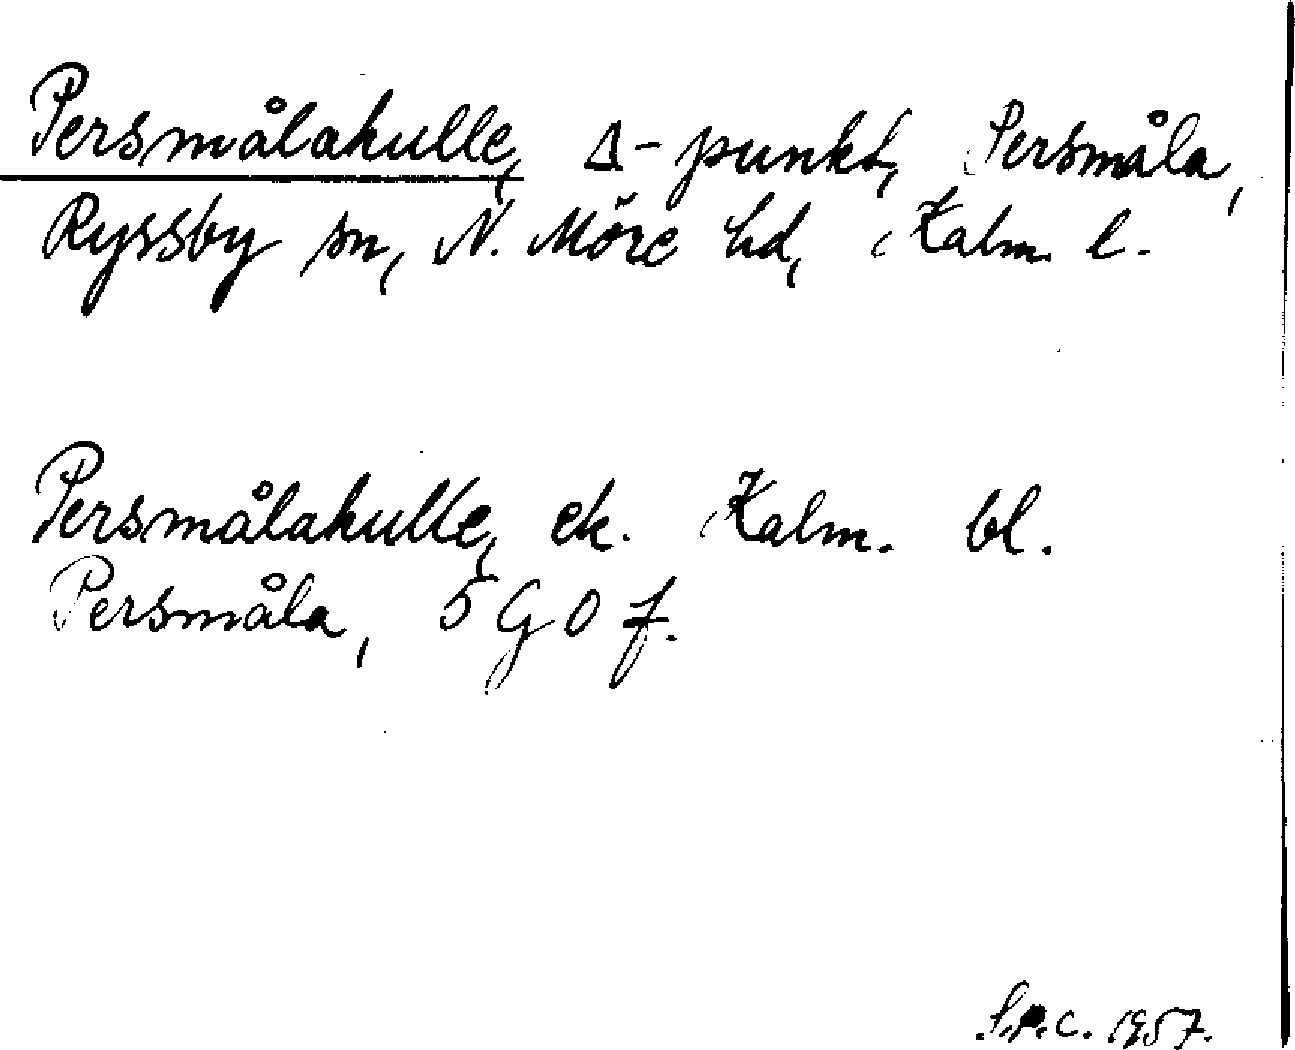 Persmålakulle, Δ-punkt, Persmåla,
Ryssby sn, N. Möre hd, Kalm. l.
Persmålakulle, ek. Kalm. bl.
Persmåla, 5 G 0 f.
S.P.C. 1957.